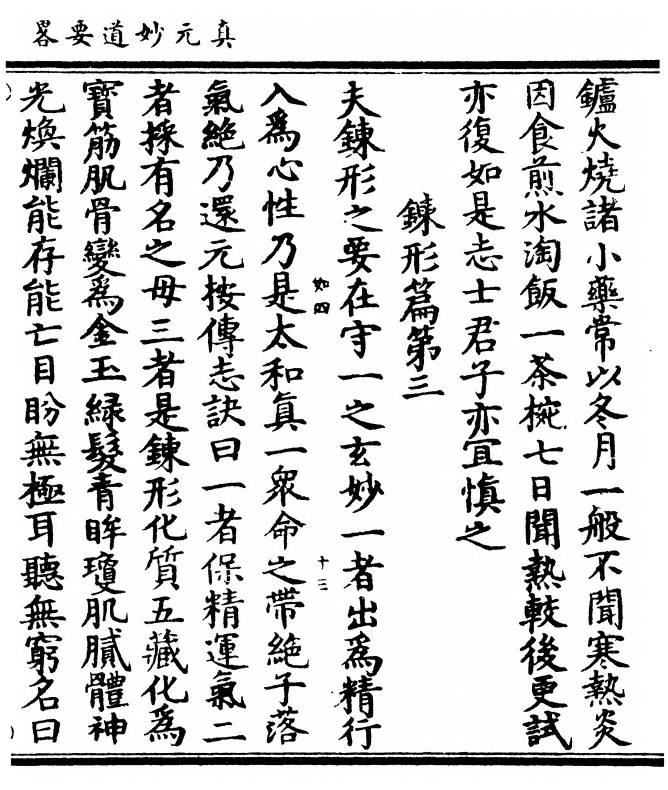 真元妙道要畧
鑪火燒諸小藥常以冬月一般不聞寒熱炎
因食煎水淘飯一茶椀七日聞熱較後更試
亦復如是志士君子亦宜慎之
鍊形篇第三
夫鍊形之要在守一之玄妙一者出爲精行
如四
十三
入爲心性乃是太和真一衆命之帶絶子落
氣絶乃還元按傳志訣曰一者保精運氣二
者採有名之母三者是鍊形化質五藏化爲
寶筋肌骨變爲金玉緑髮青眸瓊肌膩體神
光煥爛能存能亡目盼無極耳聽無窮名曰